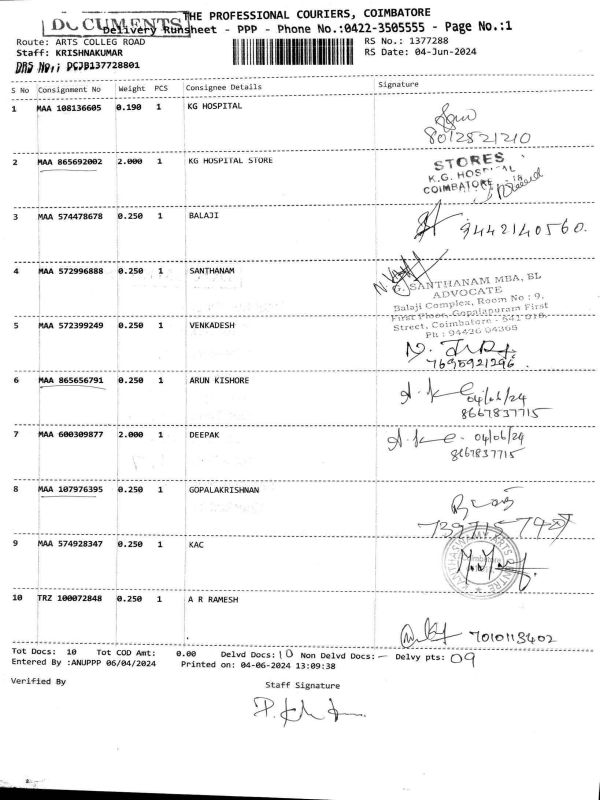 DOCUMENTS
THE PROFESSIONAL COURIERS, COIMBATORE
Delivery Runsheet - PPP - Phone No.:0422-3505555 - Page No.:1
Route: ARTS COLLEG ROAD RS No.: 1377288
Staff: KRISHNAKUMAR RS Date: 04-Jun-2024
DRS No.: PCJB137728801
S No Consignment No Weight PCS Consignee Details Signature
1 MAA 108136605 0.190 1 KG HOSPITAL
8012521210
2 MAA 865692002 2.000 1 KG HOSPITAL STORE
STORES
K.G. HOSPITAL
COIMBATORE
3 MAA 574478678 0.250 1 BALAJI
9442140560.
4 MAA 572996888 0.250 1 SANTHANAM
G. SANTHANAM MBA, BL
ADVOCATE
Balaji Complex, Room No : 9,
First Floor, Gopalapuram First
Street, Coimbatore - 641 018.
Ph : 94426 04365
5 MAA 572399249 0.250 1 VENKADESH
7695921296.
6 MAA 865656791 0.250 1 ARUN KISHORE
04/06/24
8667837715
7 MAA 600309877 2.000 1 DEEPAK
04/06/24
8667837715
8 MAA 107976395 0.250 1 GOPALAKRISHNAN
9 MAA 574928347 0.250 1 KAC
10 TRZ 100072848 0.250 1 A R RAMESH
7010113402
Tot Docs: 10 Tot COD Amt: 0.00 Delvd Docs: 10 Non Delvd Docs: - Delvy pts: 09
Entered By :ANUPPP 06/04/2024 Printed on: 04-06-2024 13:09:38
Verified By Staff Signature